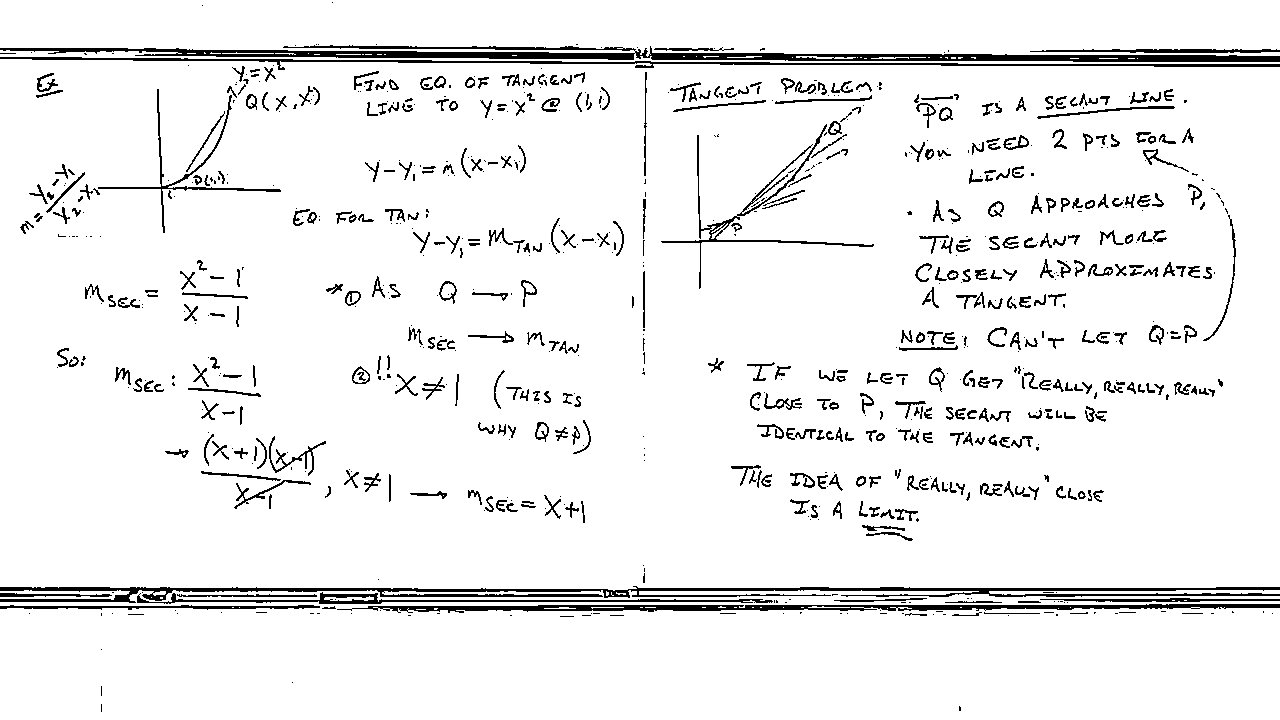 Ex
y=x²
Q(x,x²)
P(1,1)
m = y₂-y₁ / y₂-y₁
FIND EQ. OF TANGENT
LINE TO y=x² @ (1,1)
y-y₁ = m(x-x₁)
EQ. FOR TAN:
y-y₁ = m_TAN (x-x₁)
m_SEC = x²-1 / x-1
* ① AS Q → P
m_SEC → m_TAN
So:
m_SEC: x²-1 / x-1
② !! x≠1 (THIS IS
WHY Q≠P)
→ (x+1)(x-1) / x-1 , x≠1 → m_SEC = x+1
TANGENT PROBLEM:
Q
P
PQ IS A SECANT LINE.
· YOU NEED 2 PTS FOR A
LINE.
· AS Q APPROACHES P,
THE SECANT MORE
CLOSELY APPROXIMATES
A TANGENT.
NOTE: CAN'T LET Q=P
* IF WE LET Q GET "REALLY, REALLY, REALLY"
CLOSE TO P, THE SECANT WILL BE
IDENTICAL TO THE TANGENT.
THE IDEA OF "REALLY, REALLY" CLOSE
IS A LIMIT.